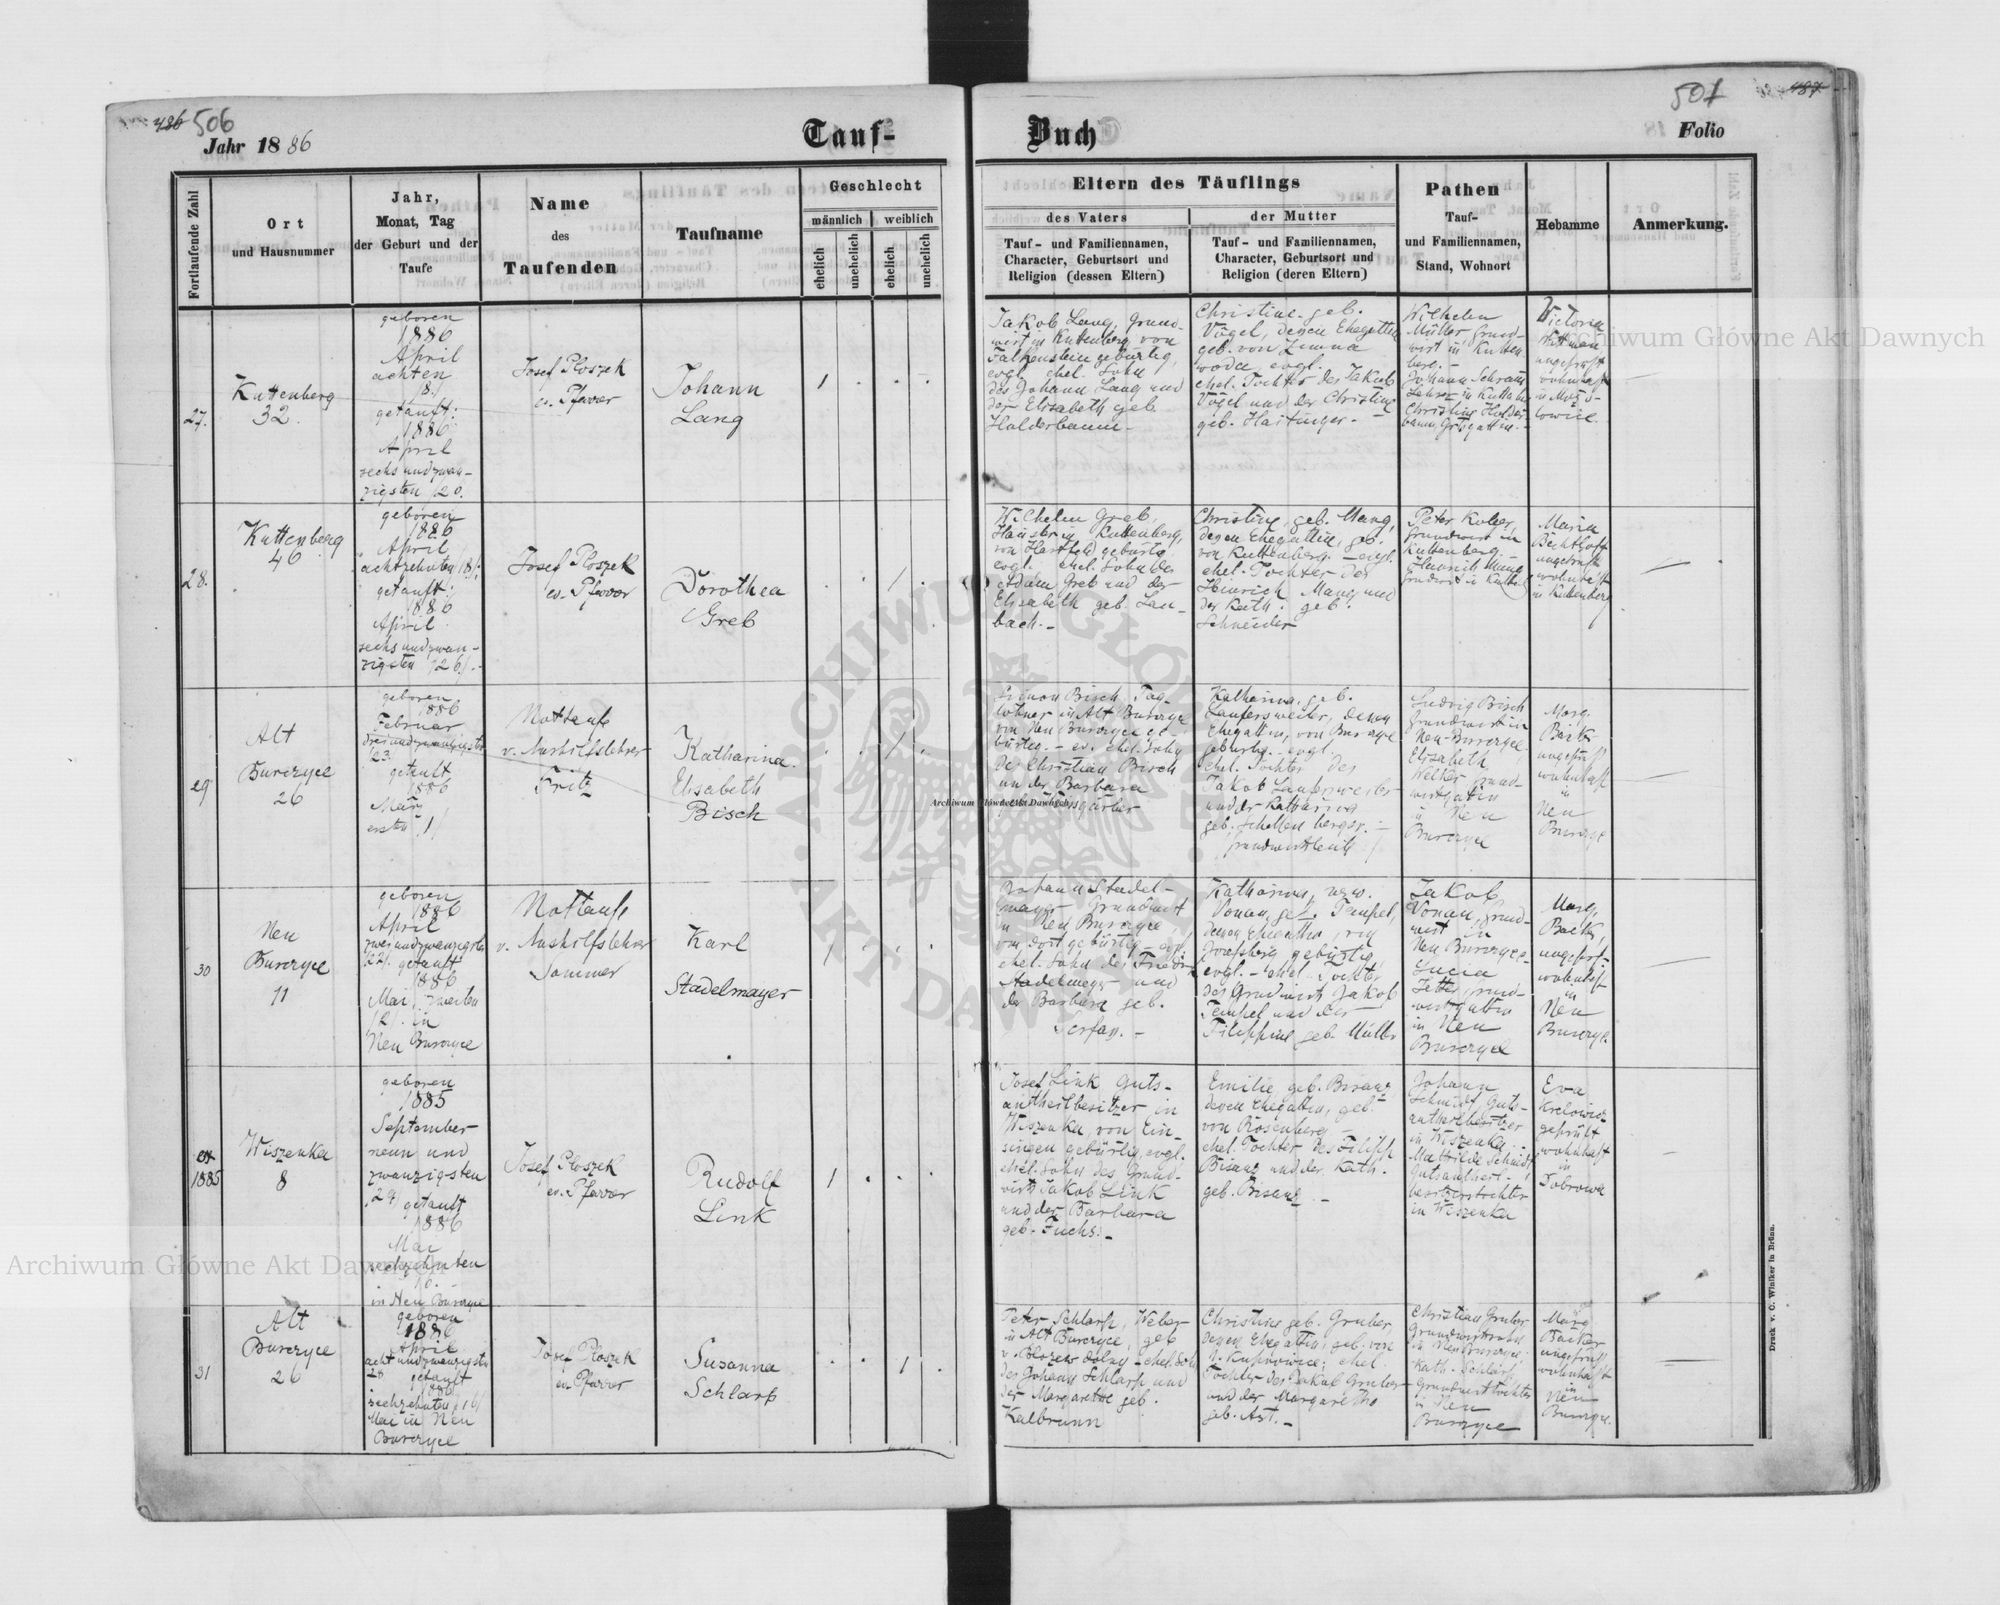 486 506
Jahr 1886
Tauf-
Buch
501 487
Folio
Fortlaufende Zahl
Ort
und Hausnummer
Jahr,
Monat, Tag
der Geburt und der
Taufe
Name
des
Taufenden
Taufname
Geschlecht
männlich
weiblich
ehelich
unehelich
ehelich
unehelich
Eltern des Täuflings
des Vaters
Tauf- und Familiennamen,
Character, Geburtsort und
Religion (dessen Eltern)
der Mutter
Tauf- und Familiennamen,
Character, Geburtsort und
Religion (deren Eltern)
Pathen
Tauf-
und Familiennamen,
Stand, Wohnort
Hebamme
Anmerkung.
27.
Kuttenberg
32.
geboren
1886
April
achten
/8./
getauft:
1886
April
sechsundzwan-
zigsten /26.
Josef Ploszek
ev. Pfarrer
Johann
Lang
1
Jakob Lang, Grund-
wirt in Kutenberg, von
Falkenstein gebürtig,
evgl. ehel. Sohn
des Johann Lang und
der Elisabeth geb.
Halderbaum.-
Christine geb.
Vogel, dessen Ehegattin
geb. von Zimna
woda, evgl.
ehel. Tochter des Jakob
Vogel und der Christine
geb. Hartinger.-
Wilhelm
Müller, Grund-
wirt in Kutten-
berg.-
Johann Schram
Lehrer in Kuttenbg
Christine Halder-
baum,
Victoria
ungeprüft
wohnhaft
28.
Kuttenberg
46
geboren
1886
April
achtzehnten /18/:
getauft:
1886
April
sechsundzwan-
zigsten /26/.-
Josef Ploszek
ev. Pfarrer
Dorothea
Greb
1
Wilhelm Greb,
Häusler in Kuttenberg,
von Hartfeld gebürtig
evgl. ehel. Sohn des
Adam Greb und der
Elisabeth geb. Lau-
bach.-
Christine, geb. Mang,
dessen Ehegattin, geb.
von Kuttenberg.- evgl.
ehel. Tochter des
Heinrich Mang und
der Kath. geb.
Schneider
Peter Kolger,
Grundwirt in
Kuttenberg.-
Heinrich Mang
Grundwirt in Kuttenb.
Maria
Bechtloff
ungeprüft
wohnhaft
in Kuttenberg
29
Alt
Burczyce
26
geboren
1886
Februar
dreiundzwanzigsten
/23.
getauft
1886
März
ersten /1/
Nottaufe
v. Aushilfslehrer
Fritz
Katharina
Elisabeth
Bisch
1
Simon Bisch, Tag-
löhner in Alt Burczyce
von Neu Burczyce ge-
bürtig.- ev. ehel. Sohn
des Christian Bisch
und der Barbara
Katharina, geb.
Laufersweiler, dessen
Ehegattin, von Burczyce
gebürtig.- evgl.
ehel. Tochter des
Jakob Laufersweiler
und der Katharina
geb. Schellenberger.-
Grundwirtsleute
Ludwig Bisch
Grundwirt in
Neu-Burczyce
Elisabeth
Welker Grund-
wirtsgattin
in Neu
Burczyce
Marg.
Back
ungeprüft
wohnhaft
in
Neu
Burczyce
30
Neu
Burczyce
11
geboren
1886
April
zweiundzwanzigsten
/22/. getauft
1886
Mai, zweiten
/2/. in
Neu Burczyce
Nottaufe
v. Aushilfslehrer
Sommer
Karl
Stadelmayer
1
Johann Stadel-
mayer Grundwirt
in Neu Burczyce,
von dort gebürtig - evgl.
ehel. Sohn des Friedr.
Stadelmeyer und
der Barbara geb.
Katharina, verw.
Vonau, geb. Tempel,
dessen Ehegattin, von
Josefsberg gebürtig,
evgl. - ehel. Tochter
des Grundwirts Jakob
Tempel und der
Filippine geb. Müller
Jakob
Vonau, Grund-
wirt in
Neu Burczyce.-
Lucia
Jetter, Grund-
wirtsgattin
in Neu
Burczyce
Marg.
Back,
ungeprf.
wohnhaft
in
Neu
Burczyce.
ex
1885
Wiszenka
8
geboren
1885
September
neun und
zwanzigsten
/29/ getauft
1886
Mai
sechzehnten
in Neu Burczyce
Josef Ploszek
ev. Pfarrer
Rudolf
Link
1
Josef Link Guts-
antheilbesitzer in
Wiszenka, von Ein-
singen gebürtig, evgl.
ehel. Sohn des Grund-
wirts Jakob Link
und der Barbara
geb. Fuchs.-
Emilie geb. Bisanz
dessen Ehegattin, geb.
von Rosenberg -
ehel. Tochter des Filipp
Bisanz und der Kath.
geb. Bisanz.-
Johann
Schmidt Guts-
antheilbesitzer
in Wiszenka.-
Mathilde Schmidt,
Gutsantheil-
besitzerstochter
in Wiszenka
Eva
Krelowicz
geprüft
wohnhaft
in
Dobrowa
31
Alt
Burczyce
26
geboren
1886
April
achtundzwanzigsten
28 getauft
1886
sechzehnten /16/
Mai in Neu
Burczyce
Josef Ploszek
ev. Pfarrer
Susanna
Schlarp
1
Peter Schlarp, Weber
in Alt Burczyce, geb.
dolny - ehel. Sohn
des Johann Schlarp und
der Margarethe geb.
Kalbrunn
Christine geb. Gruber,
dessen Ehegattin, geb. von
N. Kupnowice; ehel.
Tochter des Jakob Gruber
und der Margaretha
geb. Ast.-
Christian Gruber
Grundwirtssohn
in Neu Burczyce.
Kath. Schlarp,
Grundwirtstochter
in Neu
Burczyce
Marg.
Backer
ungeprüft
wohnhaft
in
Neu
Burczyce.
Druck v. C. Winiker in Brünn.
Archiwum Główne Akt Dawnych
Archiwum Główne Akt Dawnych
Archiwum Główne Akt Dawnych
ARCHIWUM GŁÓWNE · AKT DAWNYCH ·